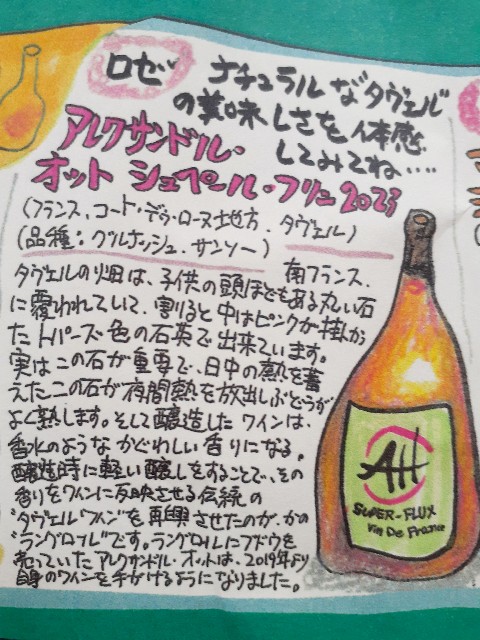 ロゼ
ナチュラルな"タヴェル"
の美味しさを体感
してみてね‥‥
アレクサンドル・
オット シュペール・フリュ 2023
(フランス、コート・デゥ・ローヌ地方、タヴェル)
(品種:グルナッシュ、サンソー)
南フランス、
タヴェルの畑は、子供の頭ほどもある丸い石
に覆われていて、割ると中はピンクが掛かっ
たトパーズ色の石英で出来ています。
実はこの石が重要で、日中の熱を蓄
えたこの石が夜間熱を放出しぶどうが
よく熟します。そして醸造したワインは、
香水のようなかぐわしい香りになる。
醸造時に軽い醸しをすることで、その
香りをワインに反映させる伝統の
"タヴェルワイン"を再興させたのが、かの
"ラングロール"です。ラングロールにブドウを
売っていたアレクサンドル・オットは、2019年より
自身のワインを手がけるようになりました。
AH
SUPER-FLUX
Vin De France